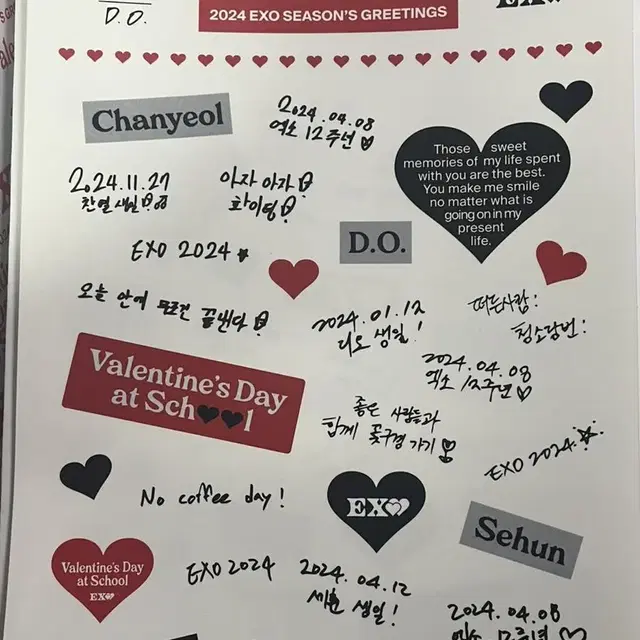 D.O.
2024 EXO SEASON'S GREETINGS
Chanyeol
2024.04.08
엑소 12주년
Those sweet
memories of my life spent
with you are the best.
You make me smile
no matter what is
going on in my
present
life.
2024.11.27
찬열 생일
아자 아자
화이팅
D.O.
EXO 2024
오늘 안에 무조건 끝낸다
2024.01.12
디오 생일!
떠든사람:
청소당번:
2024.04.08
엑소 12주년
Valentine's Day
at School
좋은 사람들과
함께 꽃구경 가기
EXO 2024
No coffee day!
EXO
Sehun
Valentine's Day
at School
EXO
EXO 2024
2024.04.12
세훈 생일!
2024.04.08
엑소 12주년